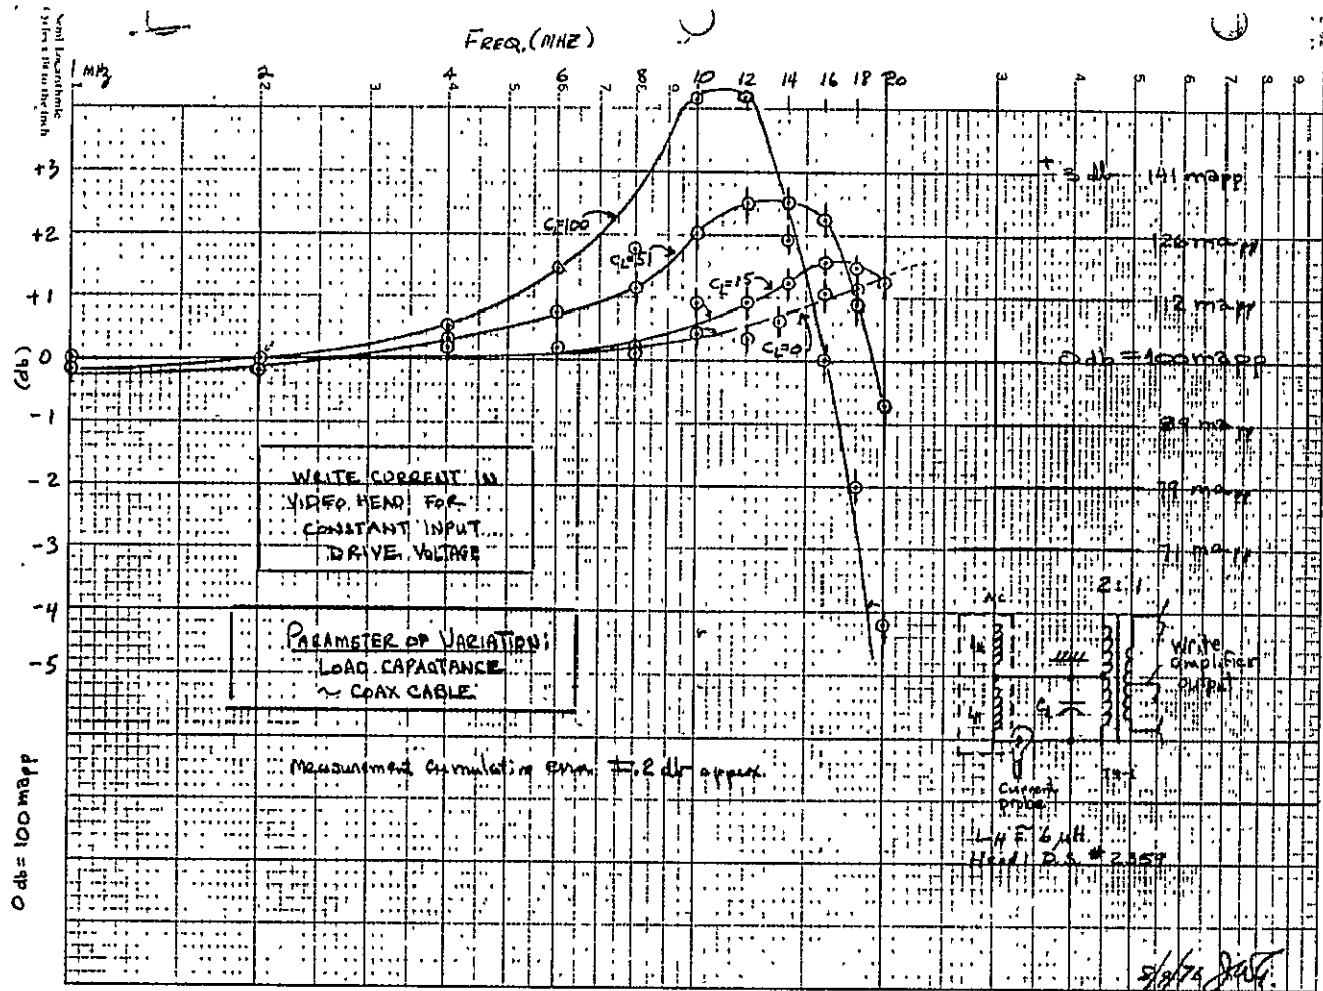 Semi Logarithmic
FREQ. (MHZ)
1 MHz 2 4 6 8 10 12 14 16 18 20
1 2 3 4 5 6 7 8 9 1 3 4 5 6 7 8 9
+3
+2
+1
0
-1
-2
-3
-4
-5
(db)
0 db = 100 mapp
CL=100
CL=51
CL=15
CL=0
+3 db 141 mapp
126 mapp
112 mapp
0 db = 100 mapp
89 mapp
79 mapp
71 mapp
WRITE CURRENT IN
VIDEO HEAD FOR
CONSTANT INPUT
DRIVE VOLTAGE
PARAMETER OF VARIATION:
LOAD CAPACTANCE
~ COAX CABLE
Measurement Cumulative error ±.2 db approx.
2:1
Write
amplifier
output
CL
Current
probe
LH = 6 µH
Head I.D.S. # 2359